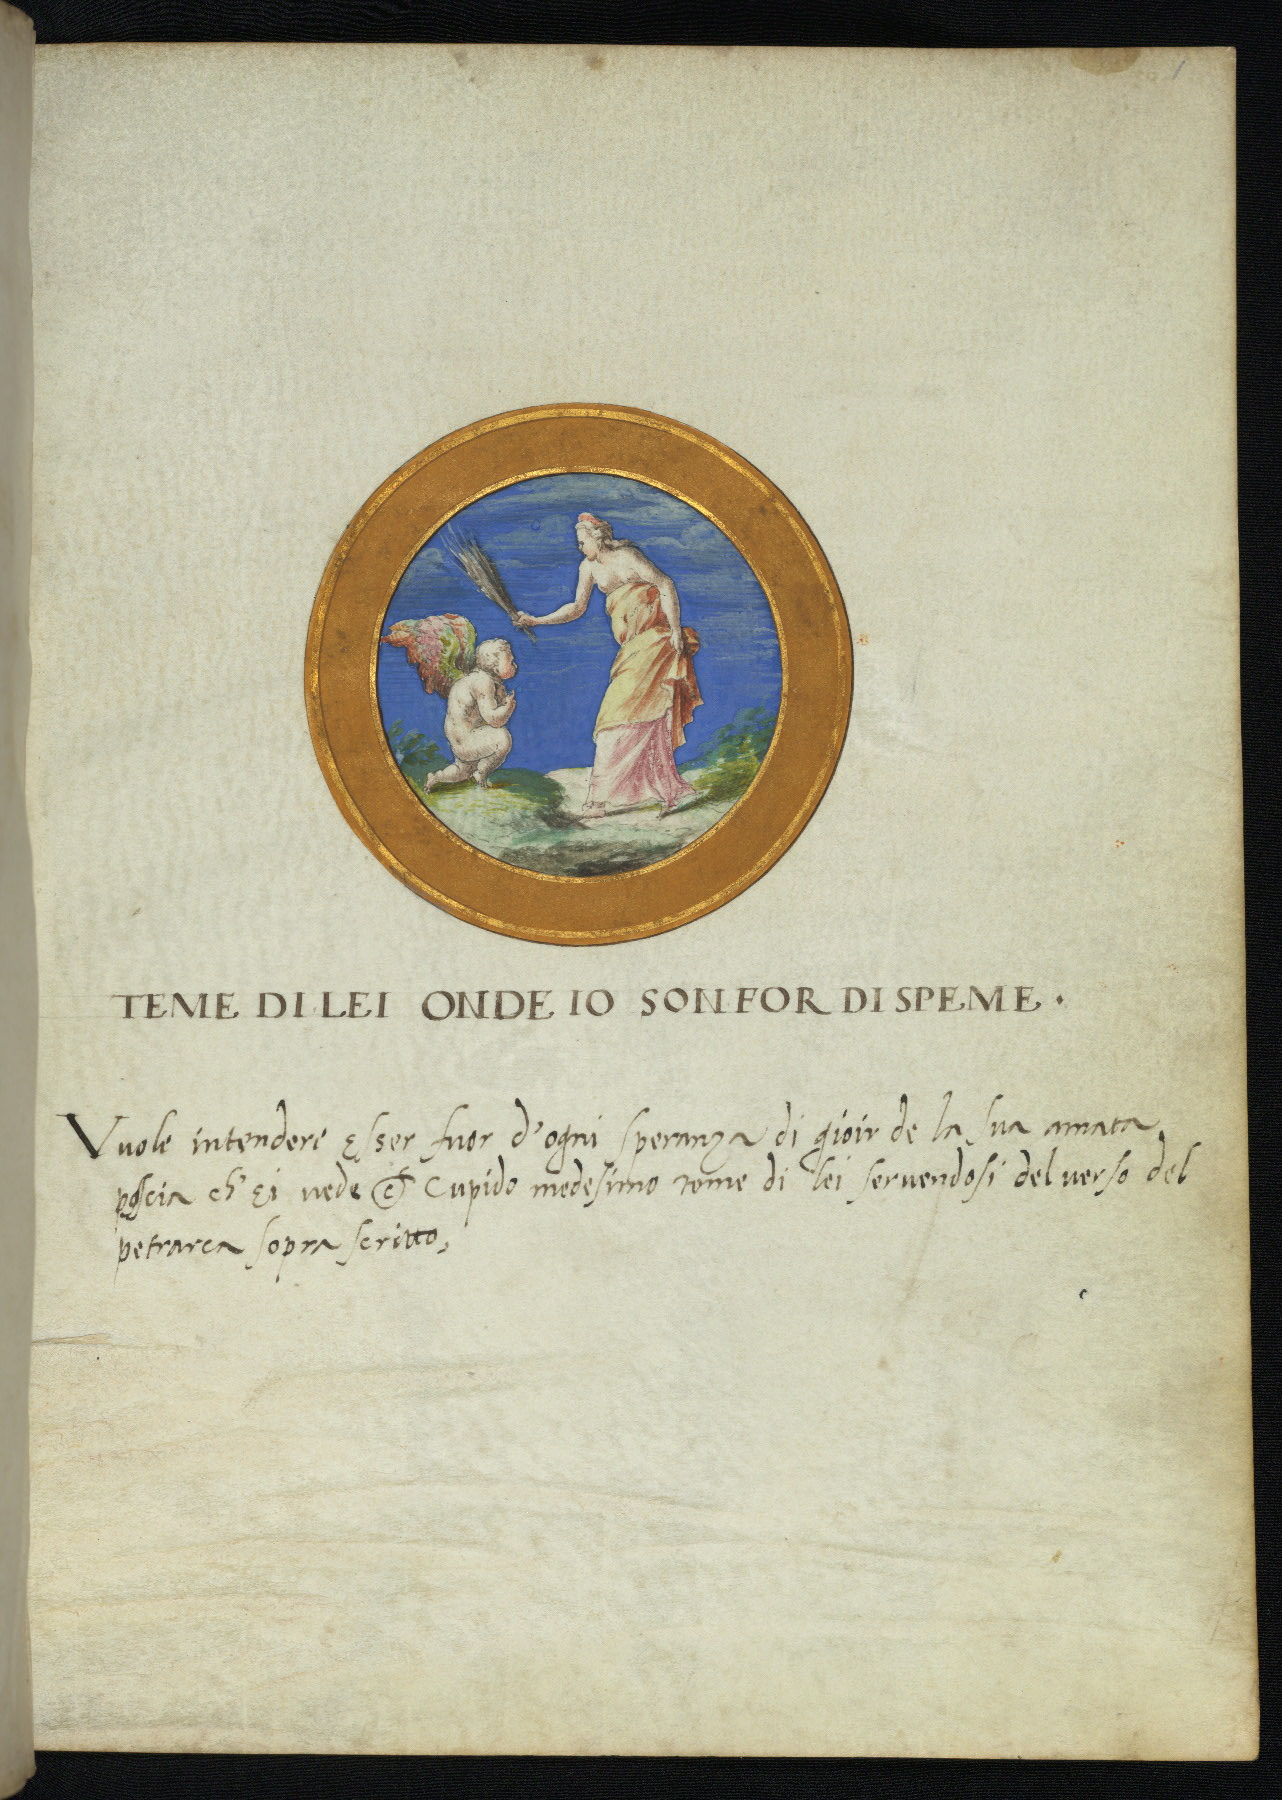 1
TEME DI LEI ONDE IO SON FOR DI SPEME.
Vuole intendere esser fuor d'ogni speranza di gioir de la sua amata
poscia ch' ei vede Cupido medesimo teme di lei servendosi del verso del
petrarca sopra scritto,